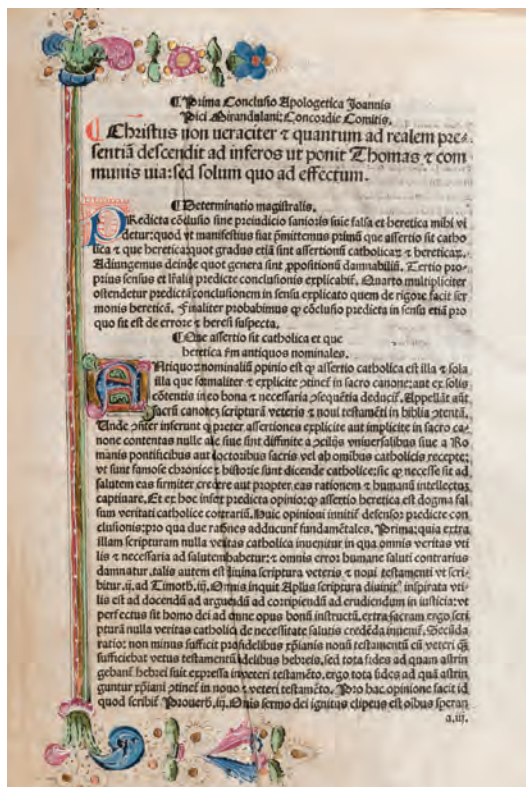 ¶ Prima Conclusio Apologetica Joannis
Pici Mirandulani: Concordie Comitis.
¶ Christus non ueraciter ⁊ quantum ad realem pre-
sentiã descendit ad inferos ut ponit Thomas ⁊ com
munis uia: sed solum quo ad effectum.
¶ Determinatio magistralis.
PRedicta cõclusio sine preiudicio sanioris snie falsa et heretica mihi vi
detur: quod vt manifestius fiat p̃mittemus primũ que assertio sit catho
lica ⁊ que heretica: quot gradus etiã sint assertionũ catholicaꝝ ⁊ hereticaꝝ.
Adiungemus deinde quot genera sint ꝓpositionũ damnabiliũ. Tertio pro-
prius sensus et lr̃alis predicte conclusionis explicabit̃. Quarto multipliciter
ostendetur predictã conclusionem in sensu explicato quem de rigore facit ser
monis hereticã. Finaliter probabimus ꝙ cõclusio predicta in sensu etiã pro
quo sit est de errore ⁊ heresi suspecta.
¶ Que assertio sit catholica et que
heretica f̃m antiquos nominales.
ANtiquoꝝ nominaliũ opinio est ꝙ assertio catholica est illa ⁊ sola
illa que formaliter ⁊ explicite ꝯtinet̃ in sacro canone: aut ex solis
cõtentis in eo bona ⁊ necessaria ꝯsequẽtia deducit̃. Appellãt aũt
sacrũ canonẽ scripturã veteris ⁊ noui testamẽti in biblia ꝯtentã.
Unde ꝯñter inferunt ꝙ preter assertiones explicite aut implicite in sacro ca-
none contentas nulle alie siue sint diffinite a ꝯcilijs vniuersalibus siue a Ro
manis pontificibus aut doctoribus sacris vel ab omibus catholicis recepte:
vt sunt famose chronice ⁊ historie sunt dicende catholice: sic ꝙ necesse sit ad
salutem eas firmiter credere aut propter eas rationem ⁊ humanũ intellectũ
captiuare. Et ex hoc infert predicta opinio: ꝙ assertio heretica est dogma fal
sum veritati catholice contrariũ. Huic opinioni innitit̃ defensor predicte con
clusionis: pro qua due rationes adducunt̃ fundamẽtales. Prima: quia extra
illam scripturam nulla veritas catholica inuenitur in qua omnis veritas vti
lis ⁊ necessaria ad salutem habetur: ⁊ omnis error humane saluti contrarius
damnatur. talis autem est diuina scriptura veteris ⁊ noui testamenti vt scri-
bitur .ij. ad Timoth. iij. Omnis inquit Apl̃us scriptura diuinit⁹ inspirata vti-
lis est ad docendũ ad arguendũ ad corripiendũ ad erudiendum in iusticia: vt
perfectus sit homo dei ad omne opus bonũ instructũ. extra sacram ergo scri
pturã nulla veritas catholica de necessitate salutis credẽda inuenit̃. Secũda
ratio: non minus sufficit ꝓ fidelibus xp̃ianis nouũ testamentũ cũ veteri ꝙ̃
sufficiebat vetus testamentũ fidelibus hebreis. sed tota fides ad quam astrin
gebant̃ hebrei fuit expressa in veteri testamẽto. ergo tota fides ad quã astrin
guntur xp̃iani ꝯtinet̃ in nouo ⁊ veteri testamẽto. Pro hac opinione facit id
quod scribit̃ Prouerb̃. iij. Omnis sermo dei ignitus clipeus est oĩbus speran
a.iij.